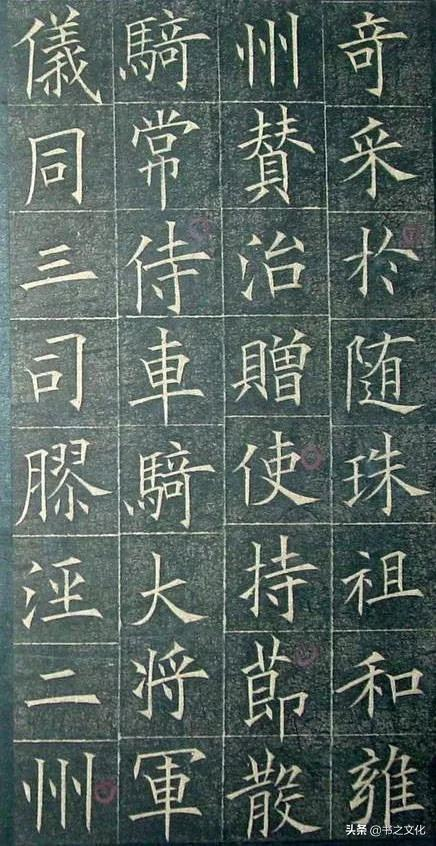 奇采於随珠祖和雍
州賛治贈使持莭散
騎常侍車騎大将軍
儀同三司膠涇二州
头条 @书之文化